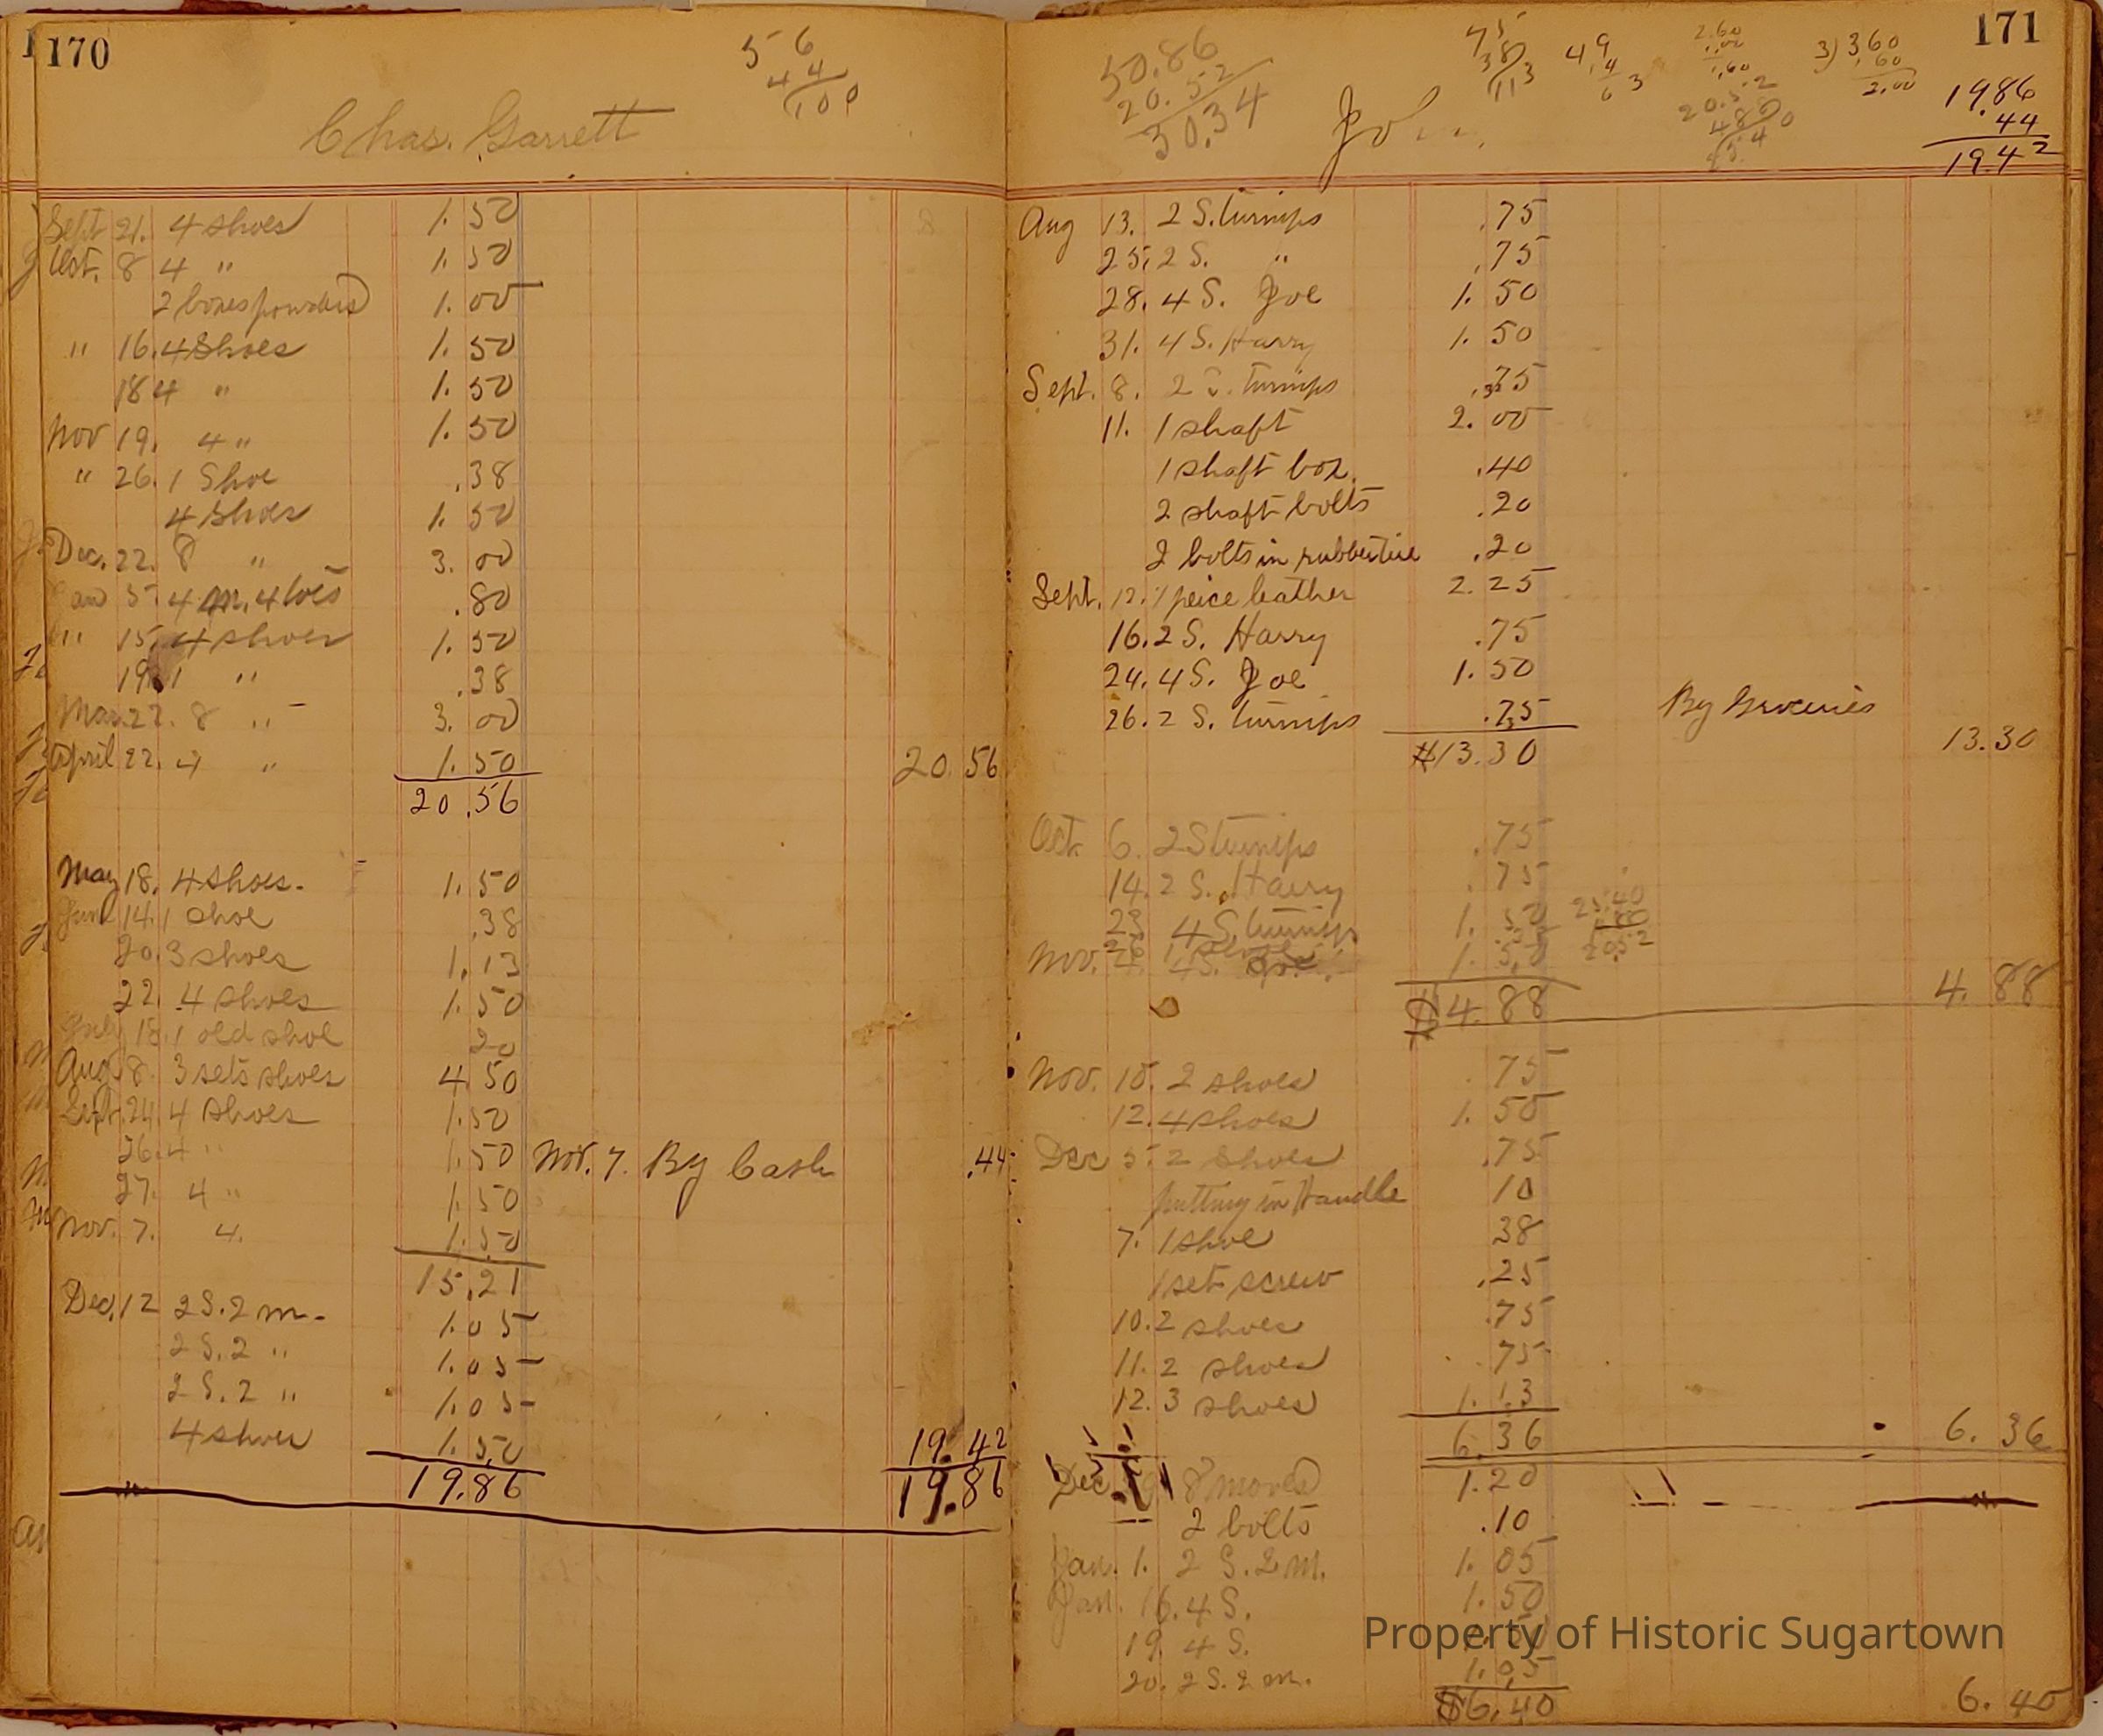 170
56
44
100
Chas. Garrett
Sept 21. 4 shoes 1.50
Oct. 8 4 " 1.50
2 boxes powders 1.00
" 16. 4 Shoes 1.50
18 4 " 1.50
Nov 19. 4 " 1.50
" 26. 1 Shoe .38
4 Shoes 1.50
Dec. 22. 8 " 3.00
Jan 5. 4 m. 4 toes .80
" 15. 4 shoes 1.50
19. 1 " .38
Mar. 22. 8 " 3.00
April 22. 4 " 1.50 20 56
20.56
May 18. 4 shoes. 1.50
June 14. 1 shoe .38
20. 3 shoes 1.13
22. 4 shoes 1.50
July 18. 1 old shoe 20
Aug. 8. 3 sets shoes 4 50
Sept. 24. 4 shoes 1.50
26. 4 " 1.50 Nov. 7. By Cash .44
27. 4 " 1.50
Nov. 7. 4. 1.50
15.21
Dec. 12 2 S. 2 m. 1.05
2 S. 2 " 1.05
2 S. 2 " 1.05
4 shoes 1.50 19.42
19.86 19.86
171
50.86
20.52
30.34
75
38
113
49
4
63
2.60
1.00
1.60
3) 3,60
.60
2.00
19.86
44
19.42
Aug 13. 2 S. turnips .75
25. 2 S. " .75
28. 4 S. Joe 1.50
31. 4 S. Harry 1.50
Sept. 8. 2 S. turnips .75
11. 1 shaft 2.00
1 shaft box .40
2 shaft bolts .20
2 bolts in rubbertire .20
Sept. 12. 1 peice leather 2.25
16. 2 S. Harry .75
24. 4 S. Joe 1.50
26. 2 S. turnips .75 By Groceries
$13.30 13.30
Oct. 6. 2 S turnips .75
14. 2 S. Harry .75
23 4 S. turnips 1.50
Nov. 4S. Joe 1.50
$4.88 4.88
Nov. 10. 2 shoes .75
12. 4 shoes 1.50
Dec 5. 2 shoes .75
putting in Handle 10
7. 1 shoe 38
1 set screw .25
10. 2 shoes .75
11. 2 shoes .75
12. 3 shoes 1.13
6.36 6.36
Dec 8 moved 1.20
2 bolts .10
Jan. 1. 2 S. 2 m. 1.05
Jan. 16. 4 S. 1.50
19. 4 S.
20. 2 S. 2 m. 1.05
$6.40 6.40
Property of Historic Sugartown